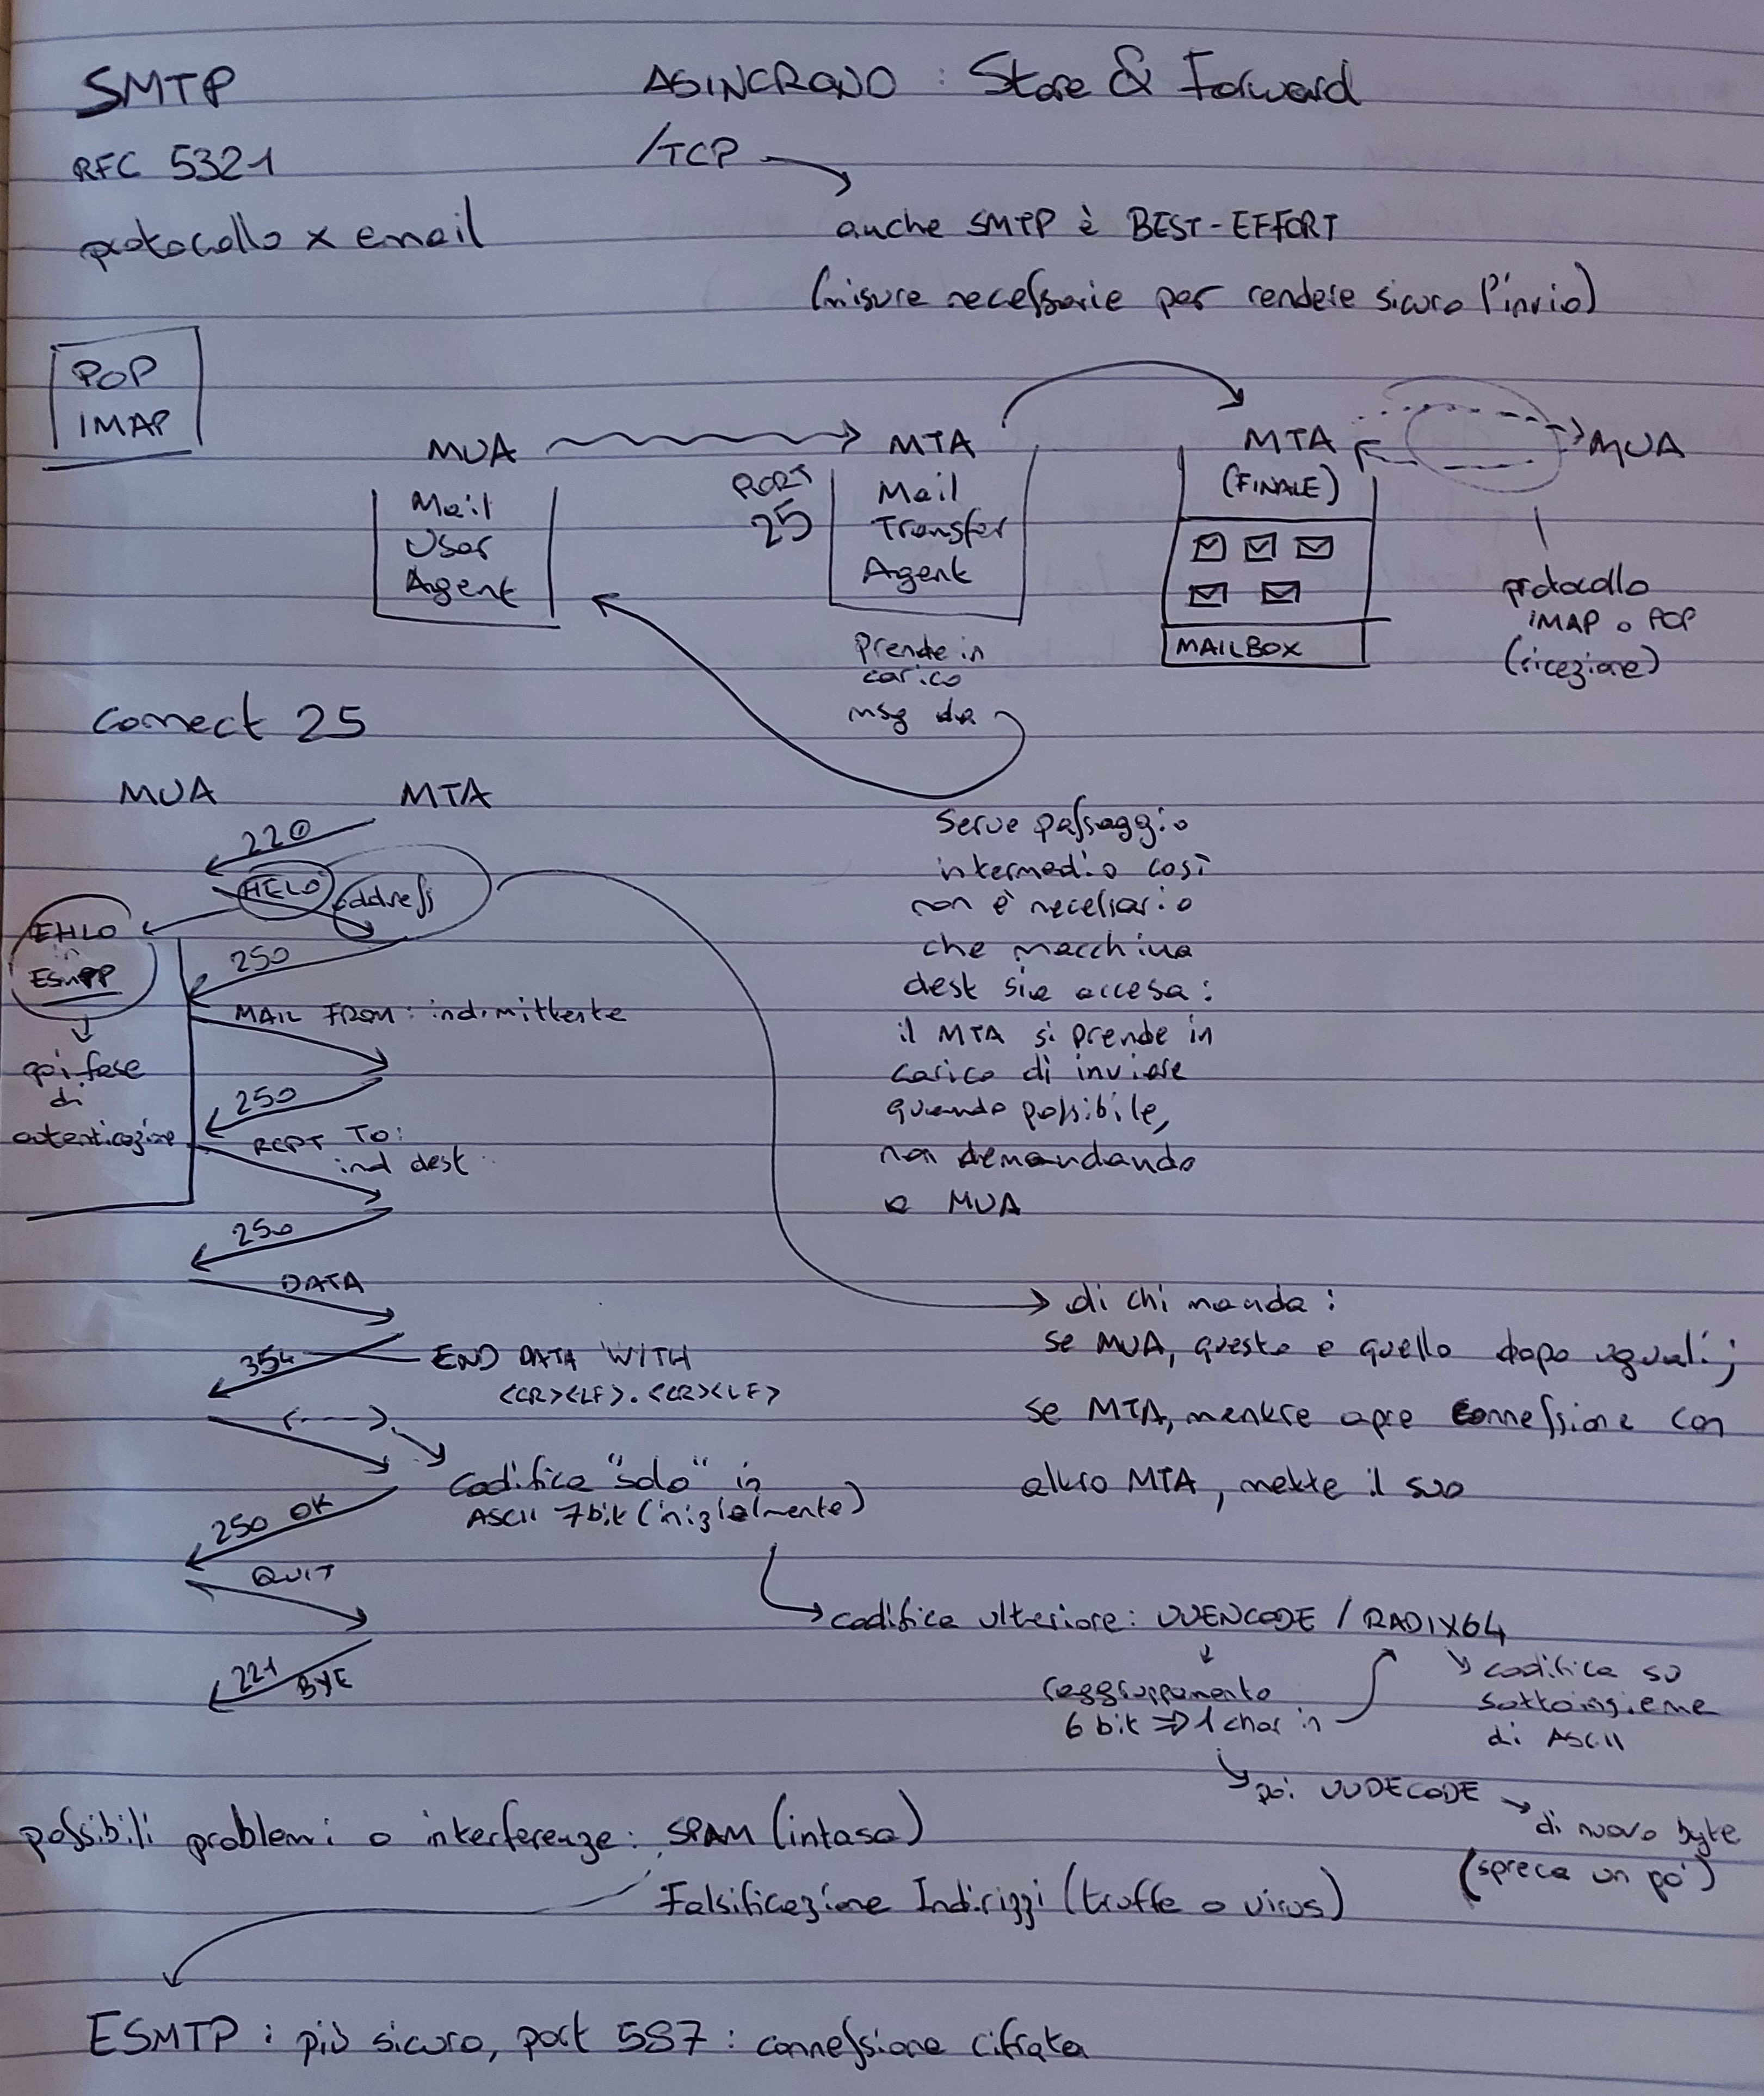 SMTP
ASINCRONO : Store & Forward
RFC 5321
/TCP
protocollo x email
anche SMTP è BEST-EFFORT
(misure necessarie per rendere sicuro l'invio)
POP
IMAP
MUA
MTA
MTA
MUA
(FINALE)
PORT
25
Mail
User
Agent
Mail
Transfer
Agent
MAILBOX
protocollo
IMAP o POP
(ricezione)
Prende in
carico
msg da
Connect 25
MUA
MTA
220
HELO address
EHLO
ESMTP
poi fase
di
autenticazione
250
MAIL FROM: ind. mittente
250
RCPT TO:
ind dest
250
DATA
354
END DATA WITH
<CR><LF>.<CR><LF>
codifica "solo" in
ASCII 7bit (inizialmente)
250 OK
QUIT
221
BYE
Serve passaggio
intermedio così
non è necessario
che macchina
dest sia accesa:
il MTA si prende in
carico di inviare
quando possibile,
non demandando
a MUA
di chi manda:
se MUA, questo e quello dopo uguali;
se MTA, mentre apre connessione con
altro MTA, mette il suo
codifica ulteriore: UUENCODE / RADIX64
raggruppamento
6 bit => 1 char in
codifica su
sottoinsieme
di ASCII
poi UUDECODE
di nuovo byte
(spreca un po')
possibili problemi o interferenze: SPAM (intasa)
Falsificazione Indirizzi (truffe o virus)
ESMTP : più sicuro, port 587 : connessione cifrata